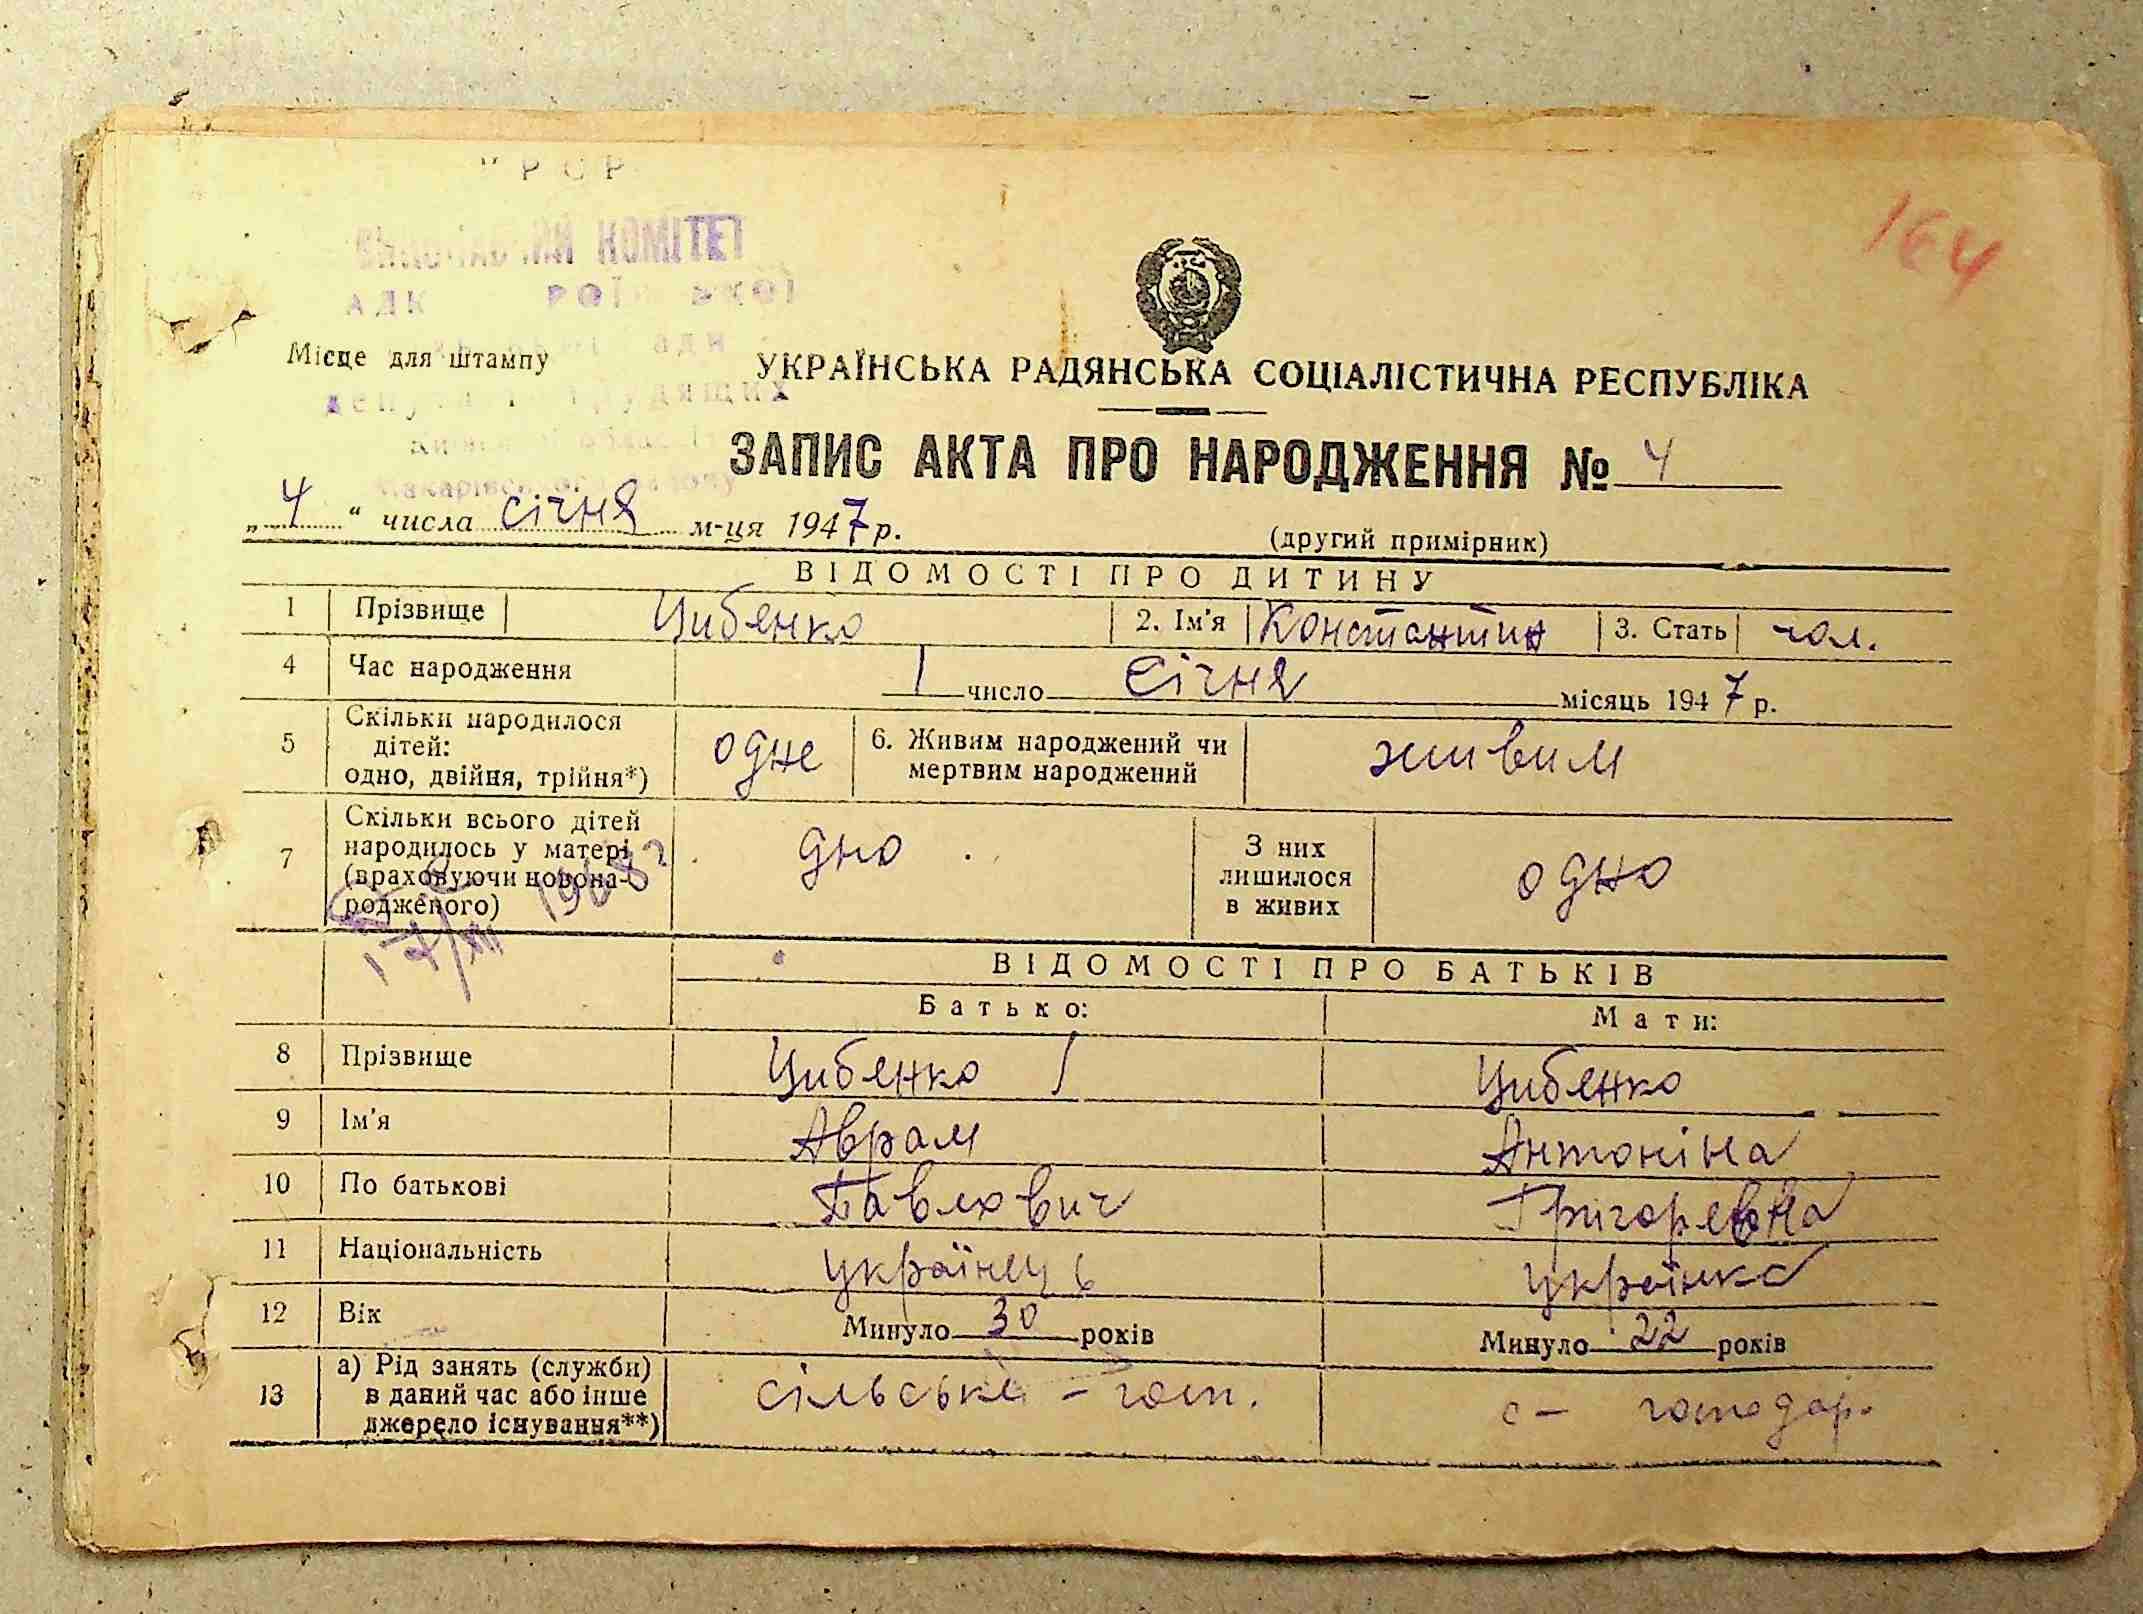 РСР
КОМІТЕТ
164
Місце для штампу
УКРАЇНСЬКА РАДЯНСЬКА СОЦІАЛІСТИЧНА РЕСПУБЛІКА
ЗАПИС АКТА ПРО НАРОДЖЕННЯ № 4
„4“ числа січня м-ця 1947 р.
(другий примірник)
ВІДОМОСТІ ПРО ДИТИНУ
1 Прізвище Цибенко 2. Ім'я Константин 3. Стать чол.
4 Час народження 1 число Січня місяць 1947 р.
5 Скільки народилося дітей: одно, двійня, трійня*) одне 6. Живим народжений чи мертвим народжений живим
7 Скільки всього дітей народилось у матері (враховуючи новонародженого) дно З них лишилося в живих одно
17/XII 1968 г
ВІДОМОСТІ ПРО БАТЬКІВ
Батько: Мати:
8 Прізвище Цибенко Цибенко
9 Ім'я Аврам Антоніна
10 По батькові Павлович Григоревна
11 Національність українець українка
12 Вік Минуло 30 років Минуло 22 років
13 а) Рід занять (служби) в даний час або інше джерело існування**) сільське - госп. с - господар.